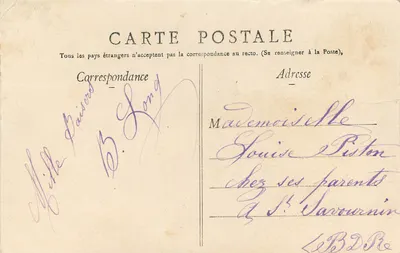 CARTE POSTALE
Tous les pays étrangers n'acceptent pas la correspondance au recto. (Se renseigner à la Poste),
Correspondance
Adresse
Mille Baisers
B. Long
Mademoiselle
Louise Piston
chez ses parents
à St Savournin
BDR